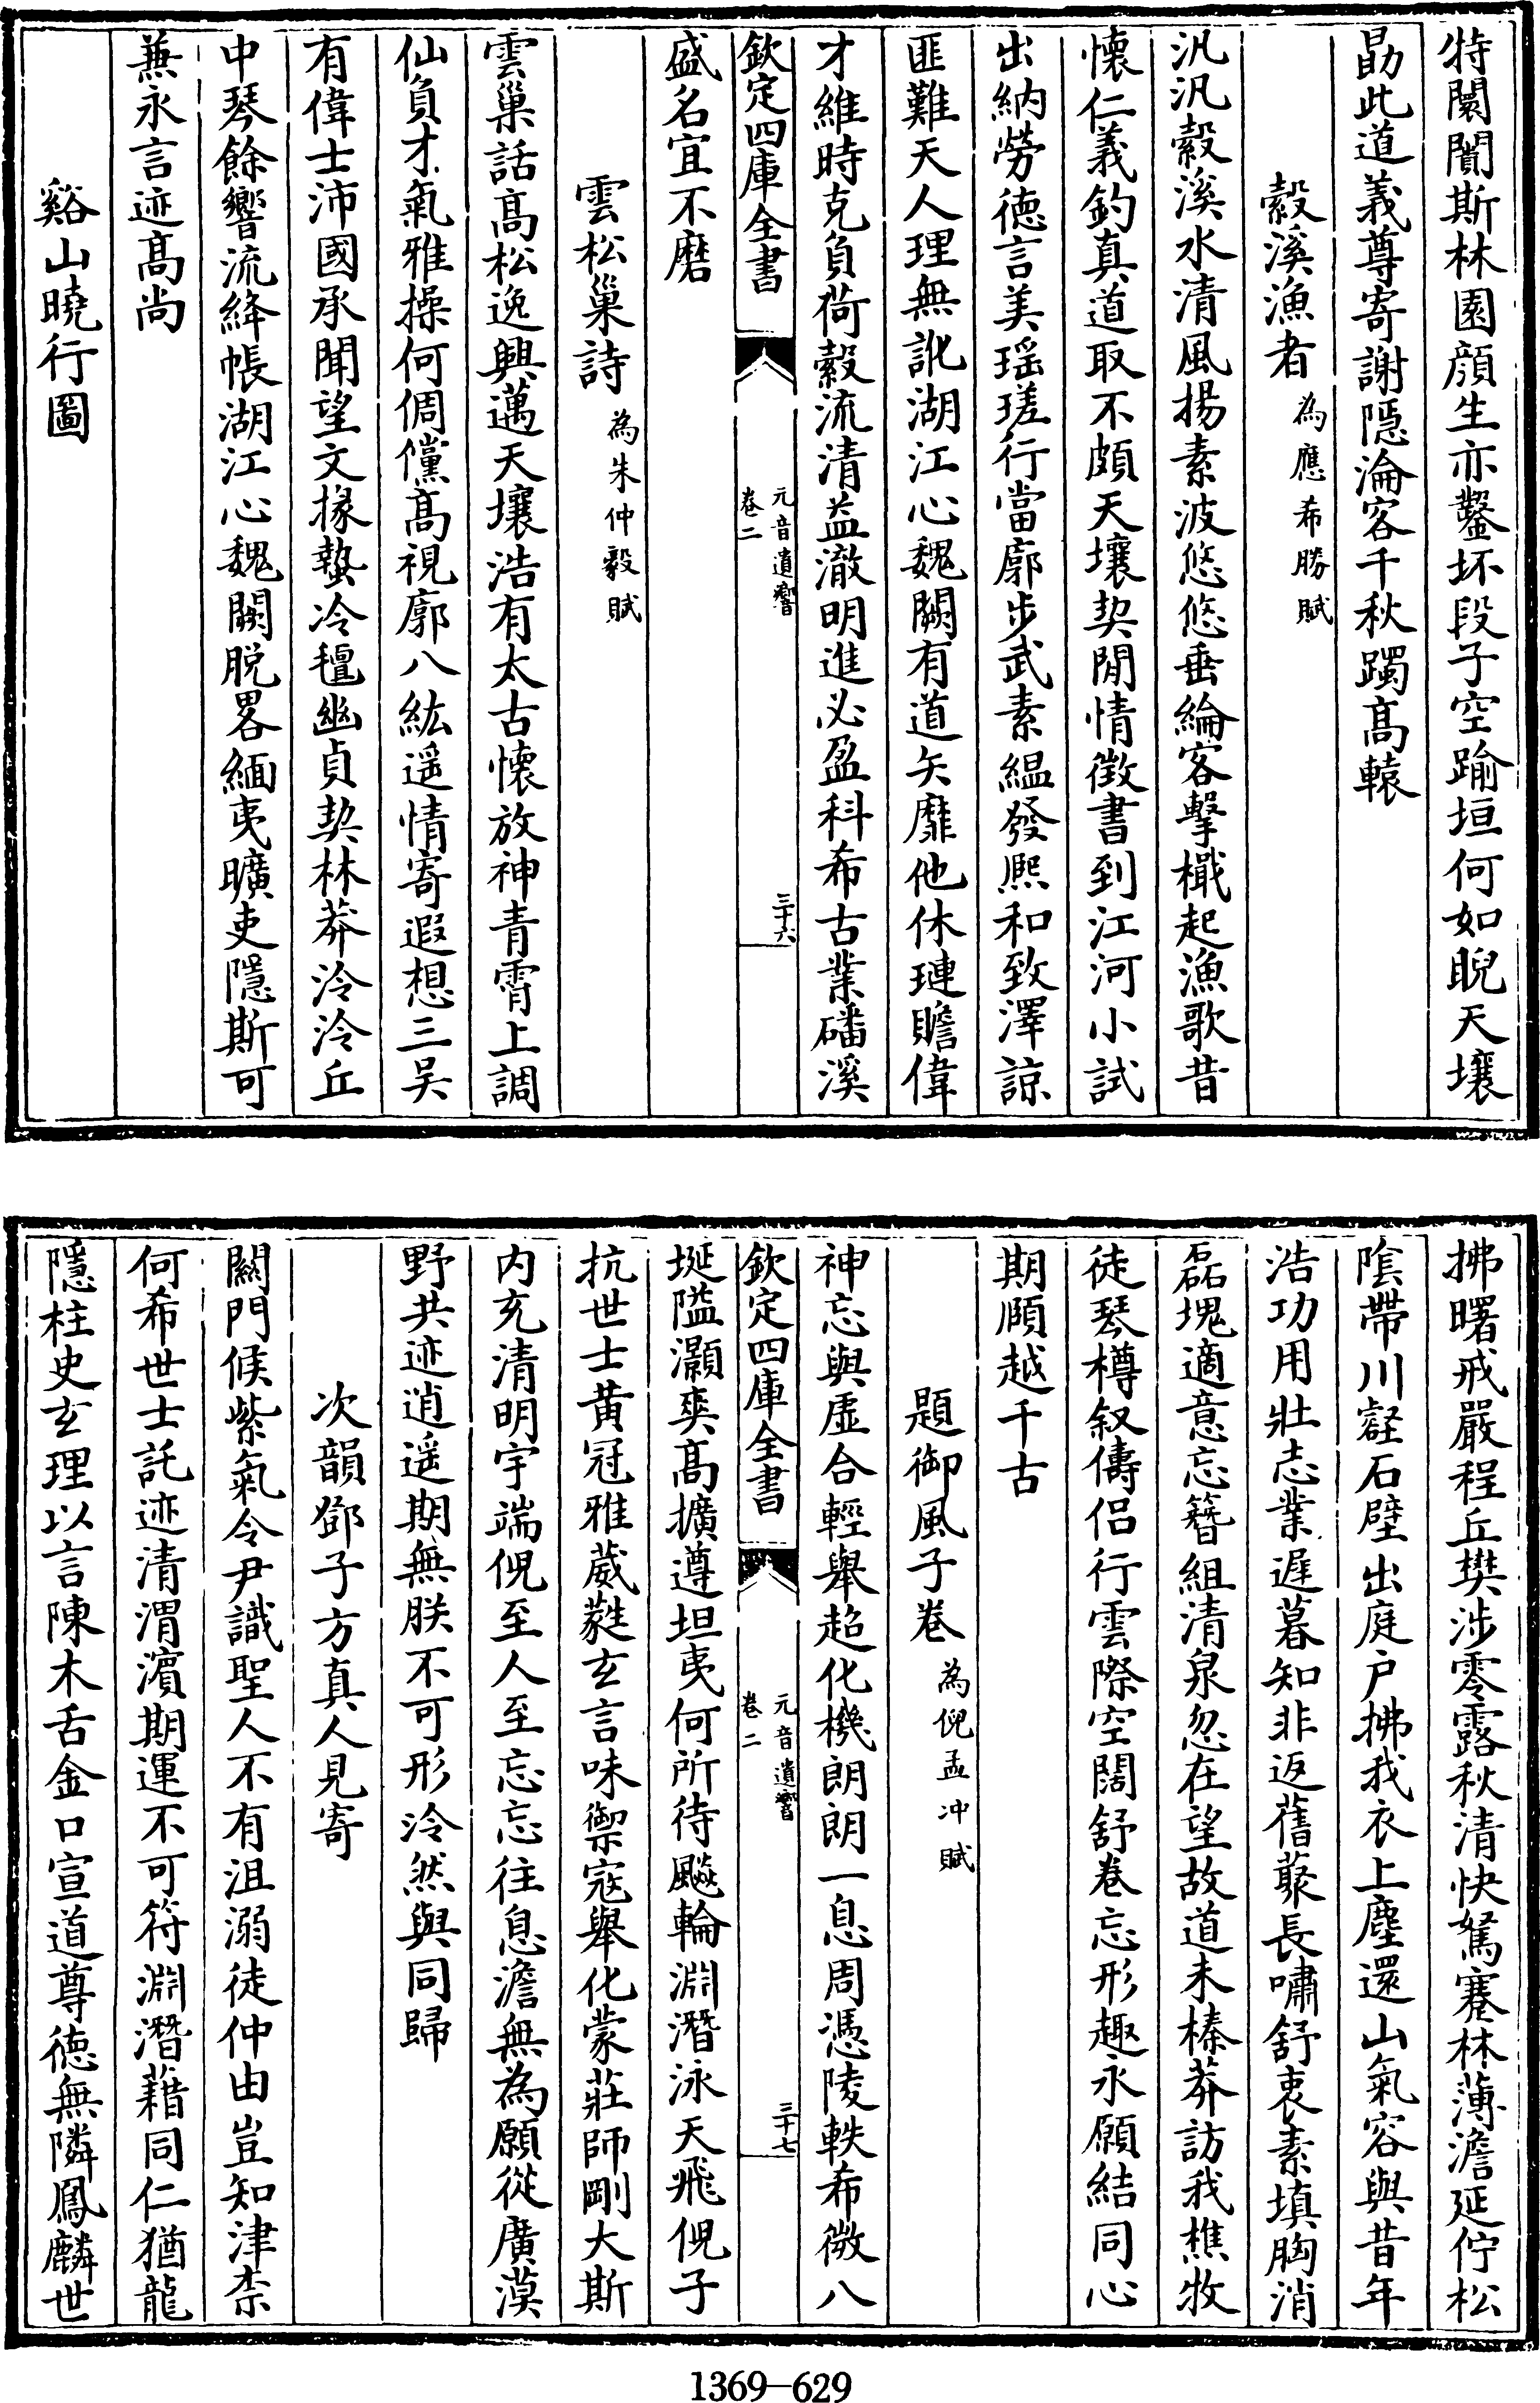 特闤闠斯林園顔生亦鑿坏段子空踰垣何如睨天壤
勗此道義尊寄謝隱淪客千秋躅髙轅
縠溪漁者為應希勝賦
汎汎縠溪水清風揚素波悠悠垂綸客擊檝起漁歌昔
懐仁義釣真道取不頗天壤契閒情徴書到江河小試
出納勞徳言美瑶瑳行當廓步武素緼發熈和致澤諒
匪難天人理無訛湖江心魏闕有道矢靡他休璉瞻偉
才維時克負荷縠流清益澈明進必盈科希古業磻溪
欽定四庫全書
元音遺響
卷二
三十六
盛名宜不磨
雲松巢詩為朱仲毅賦
雲巢話髙松逸興邁天壤浩有太古懐放神青霄上調
仙負才氣雅操何倜儻髙視廓八紘遥情寄遐想三吴
有偉士沛國承聞望文掾蟄冷氊幽貞契林莽泠泠丘
中琴餘響流絳帳湖江心魏闕脱畧緬夷曠吏隱斯可
兼永言迹髙尚
谿山曉行圖
拂曙戒嚴程丘樊涉零露秋清快駑蹇林薄澹延佇松
陰帶川壑石壁出庭户拂我衣上塵還山氣容與昔年
浩功用壯志業遲暮知非返舊蔂長嘯舒衷素填胸消
磊塊適意忘簪組清泉忽在望故道未榛莽訪我樵牧
徒琴樽叙儔侣行雲際空闊舒卷忘形趣永願結同心
期頋越千古
題御風子卷為倪孟冲賦
神忘與虚合輕舉超化機朗朗一息周憑陵軼希微八
埏隘灝奕髙擴遵坦夷何所待飈輪淵潛泳天飛倪子
抗世士黄冠雅葳蕤玄言味禦寇舉化蒙莊師剛大斯
内充清明宇端倪至人至忘忘往息澹無為願從廣漠
野共迹逍遥期無朕不可形泠然與同歸
次韻鄧子方真人見寄
闗門候紫氣令尹識聖人不有沮溺徒仲由豈知津柰
何希世士託迹清渭濱期運不可符淵潛藉同仁猶龍
隱柱史玄理以言陳木舌金口宣道尊徳無隣鳳麟世
欽定四庫全書
元音遺響
卷二
三十七
1369—629